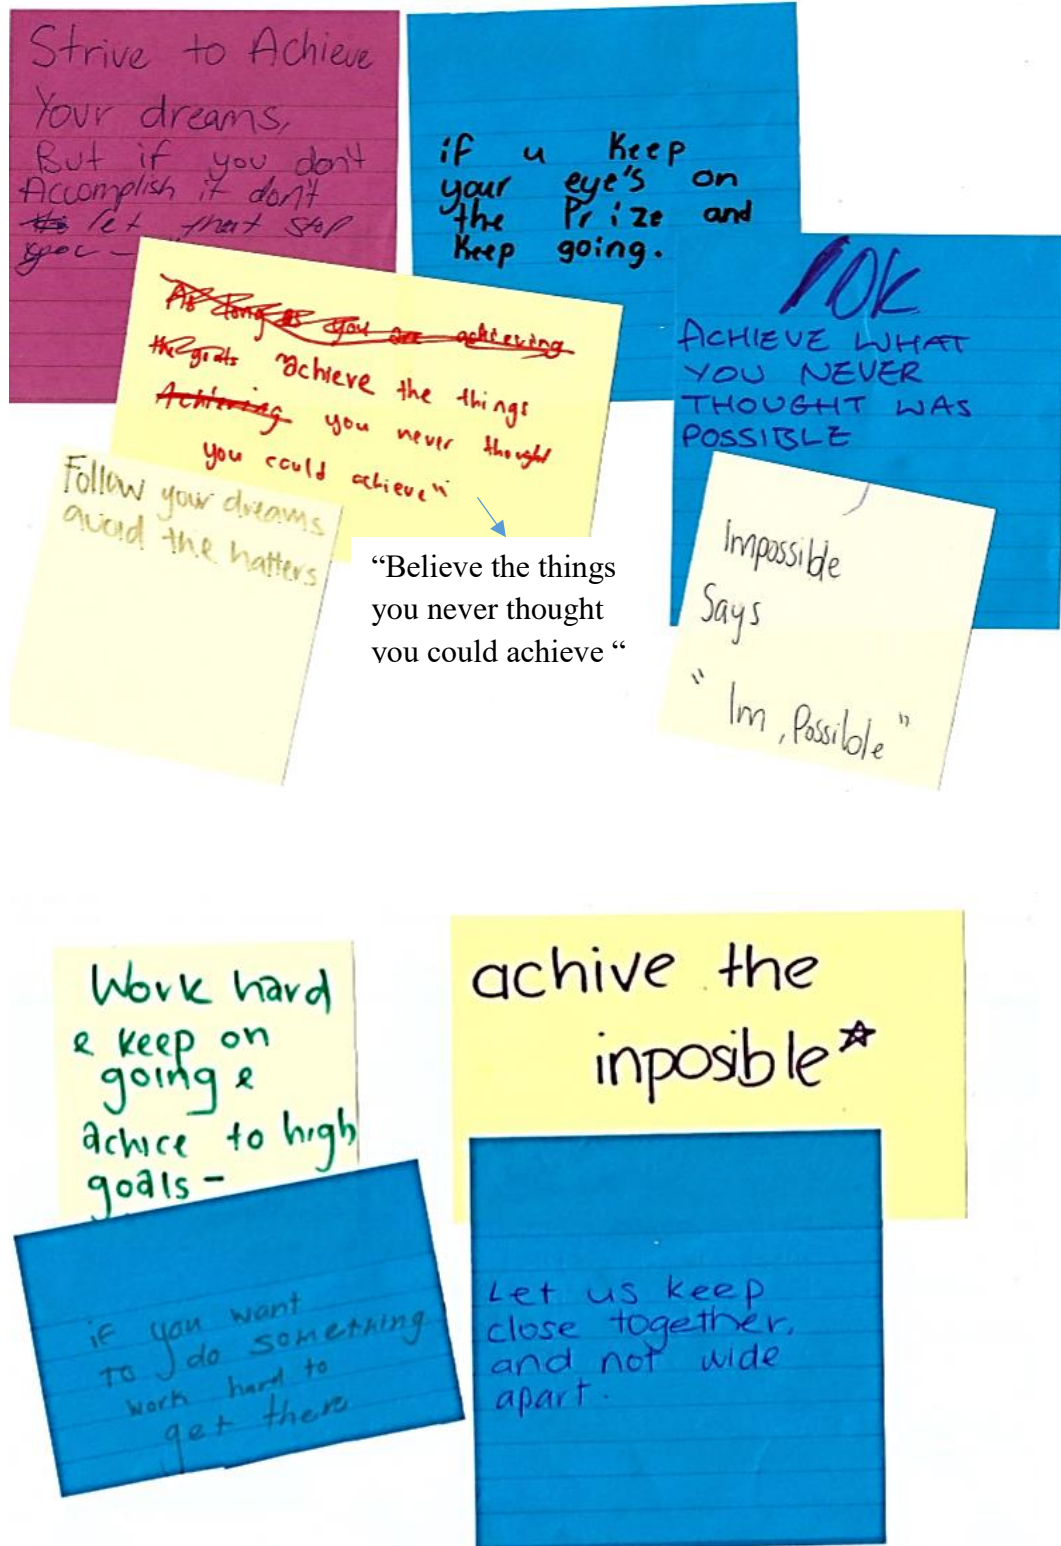 Strive to Achieve
Your dreams,
But if you don't
Accomplish it don't
let that stop
if u keep
your eye's on
the Prize and
keep going.
As long as you are achieving
the goals achieve the things
Achieving you never thought
you could achieve"
10K
ACHIEVE WHAT
YOU NEVER
THOUGHT WAS
POSSIBLE
Follow your dreams
avoid the hatters
“Believe the things
you never thought
you could achieve “
Impossible
Says
" Im, Possible "
Work hard
& keep on
going &
achice to high
goals -
achive the
inposible
if you want
to do something
work hard to
get there
Let us keep
close together,
and not wide
apart.